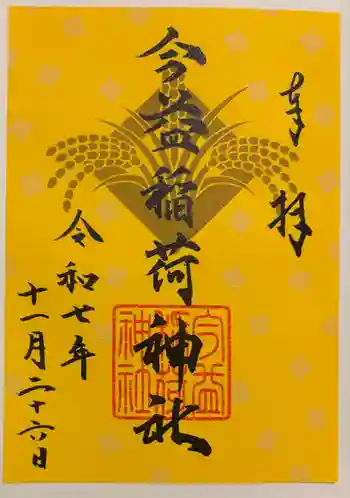 奉拝
今益稲荷神社
令和七年
十一月二十六日
今益
稲荷
神社